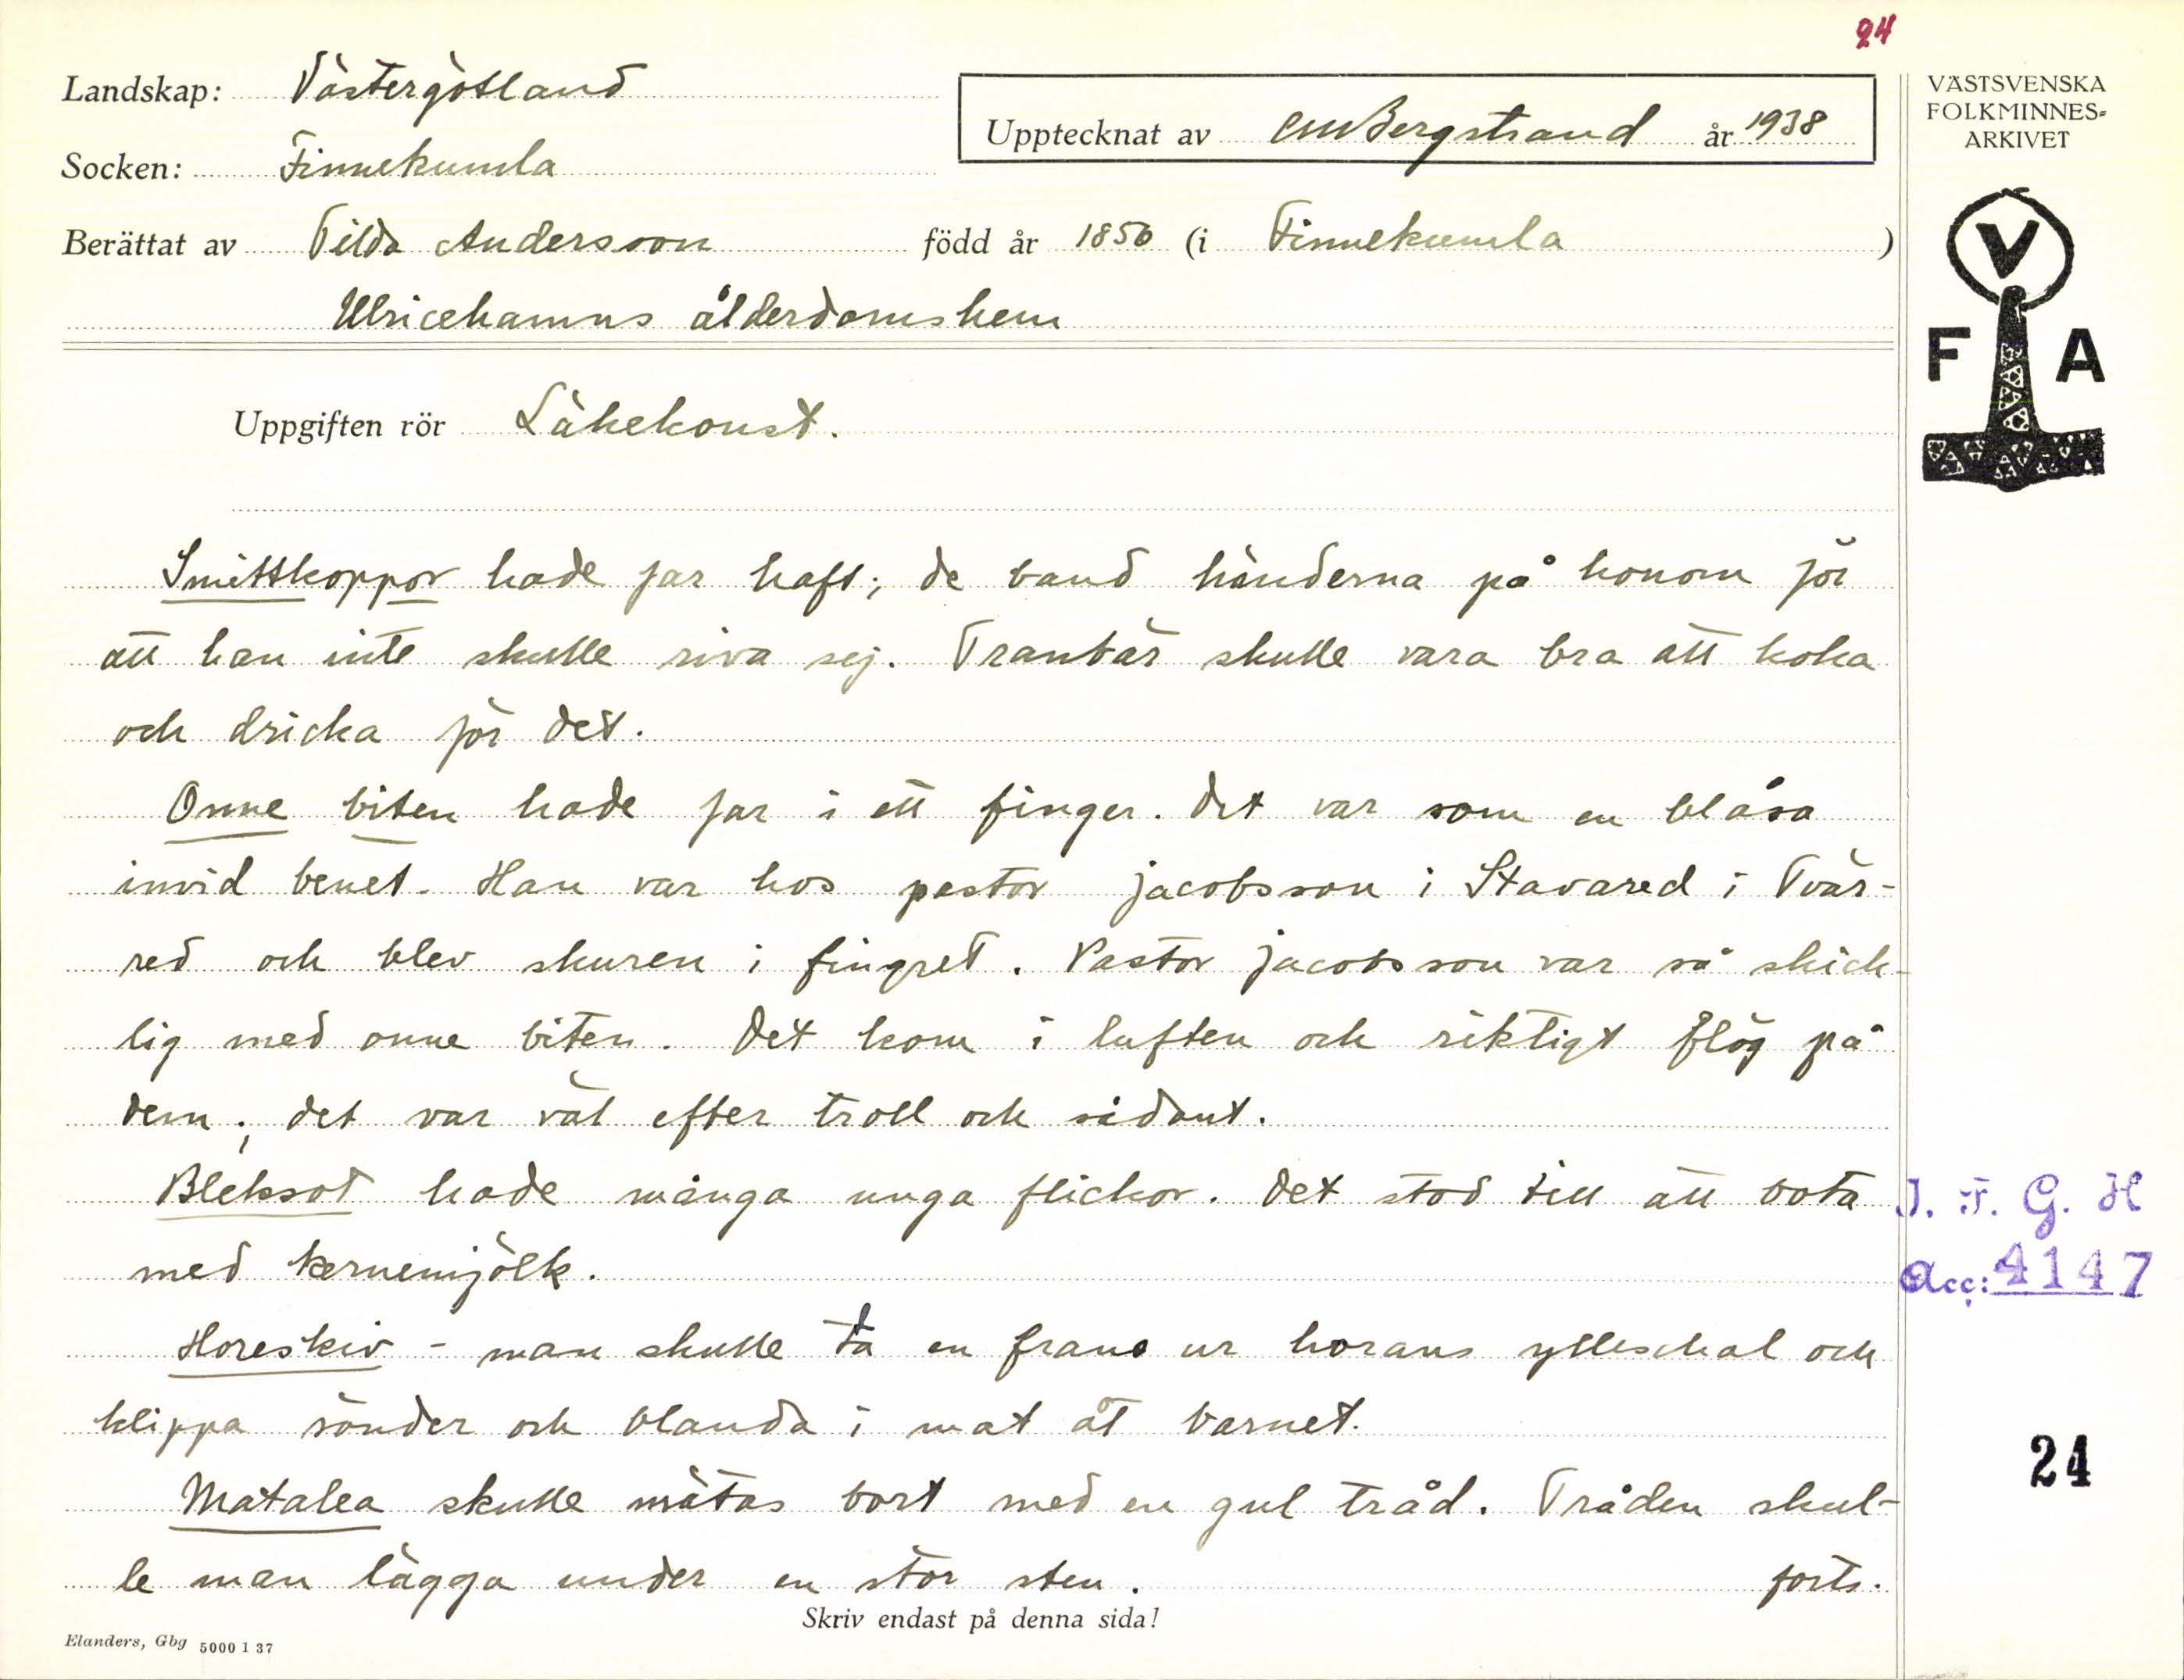 24
Landskap: Västergötland
Upptecknat av CMBergstrand år 1938
VÄSTSVENSKA
FOLKMINNES=
ARKIVET
Socken: Finnekumla
Berättat av Tilda Andersson född år 1856 (i Finnekumla)
Ulricehamns ålderdomshem
V
F A
Uppgiften rör Läkekonst.
Smittkoppor hade far haft; de band händerna på honom för
att han inte skulle riva sej. Tranbär skulle vara bra att koka
och dricka för det.
Onne biten hade far i ett finger. Det var som en blåsa
invid benet. Han var hos pastor Jacobsson i Stavared i Tvär-
red och blev skuren i fingret. Pastor Jacobsson var så skick-
lig med onne biten. Det kom i luften och riktigt flög på
dem; det var väl efter troll och sådant.
Bleksot hade många unga flickor. Det stod till att bota
med kernemjölk.
Horeskiv - man skulle ta en frans ur horans ylleschal och
klippa sönder och blanda i mat åt barnet.
Matalea skulle mätas bort med en gul tråd. Tråden skul-
le man lägga under en stor sten. forts.
I. F. G. H
Acc: 4147
24
Skriv endast på denna sida!
Elanders, Gbg 5000 1 37